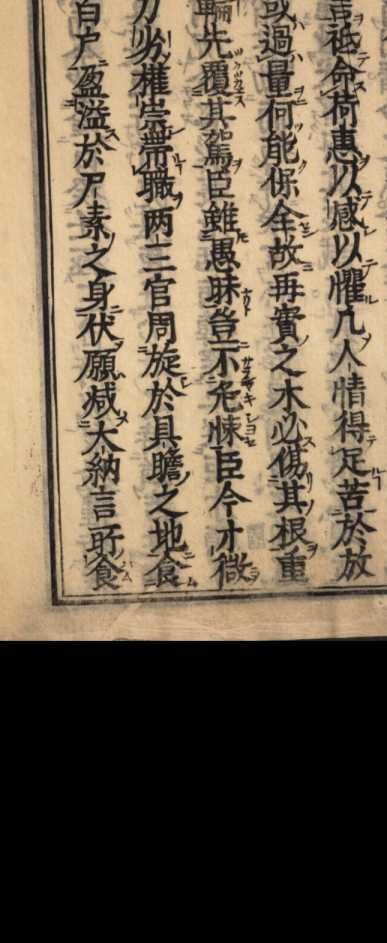 祗命荷惠以感以懼凡人情得足苦於放
或過量何能保全故再實之木必傷其根重
輪先覆其駕臣雖愚昧豈不免悚臣今才微
力劣權崇帶職两三官周旋於具瞻之地食
百户盈溢於尸素之身伏願减大納言所食